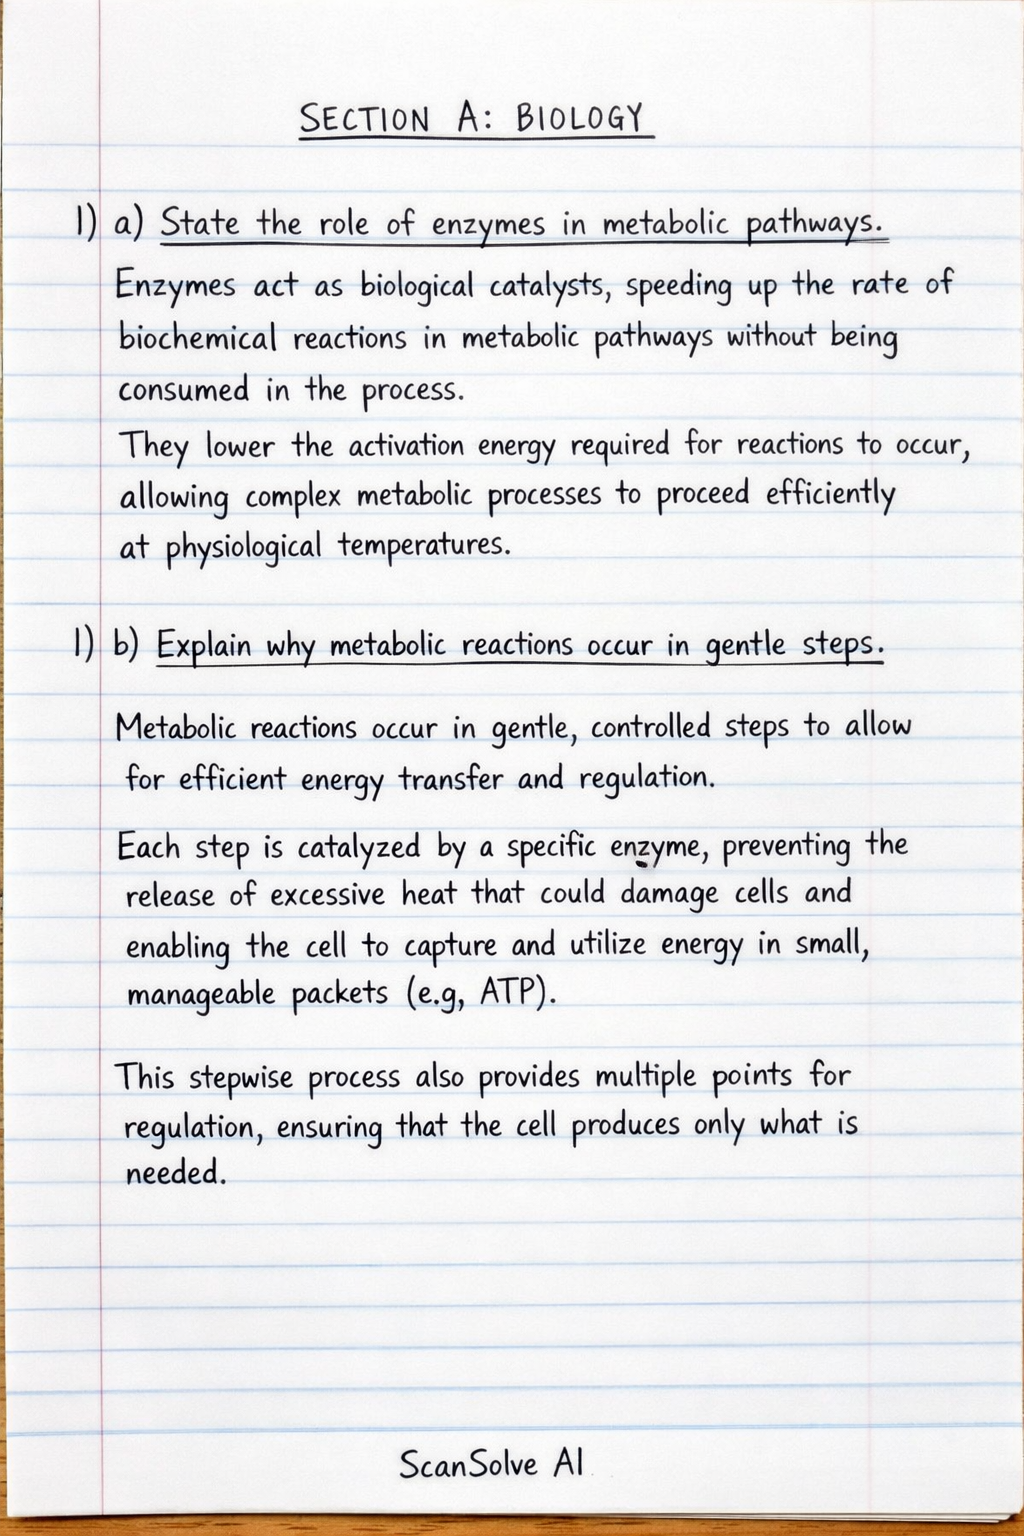 SECTION A: BIOLOGY
1) a) State the role of enzymes in metabolic pathways.
Enzymes act as biological catalysts, speeding up the rate of
biochemical reactions in metabolic pathways without being
consumed in the process.
They lower the activation energy required for reactions to occur,
allowing complex metabolic processes to proceed efficiently
at physiological temperatures.
1) b) Explain why metabolic reactions occur in gentle steps.
Metabolic reactions occur in gentle, controlled steps to allow
for efficient energy transfer and regulation.
Each step is catalyzed by a specific enzyme, preventing the
release of excessive heat that could damage cells and
enabling the cell to capture and utilize energy in small,
manageable packets (e.g, ATP).
This stepwise process also provides multiple points for
regulation, ensuring that the cell produces only what is
needed.
ScanSolve AI